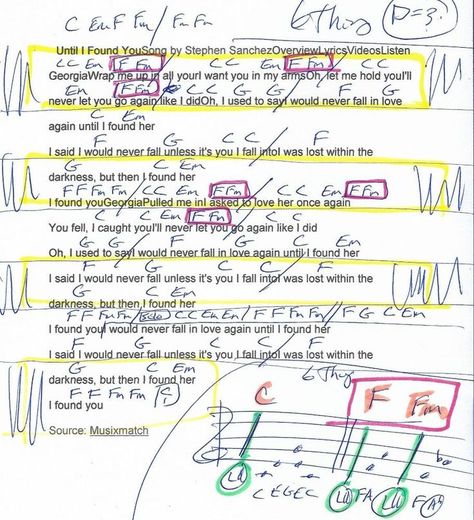 C Em F Fm / Fm Fm 6 Thing P=?
Until I Found YouSong by Stephen SanchezOverviewLyricsVideosListen
CC Em F Fm / C C Em F Fm / C C
GeorgiaWrap me up in all yourI want you in my armsOh, let me hold youI'll
Em F Fm CC G G / F G
never let you go again like I didOh, I used to sayI would never fall in love
C Em
again until I found her
F G C C / F
I said I would never fall unless it's you I fall intoI was lost within the
G C Em
darkness, but then I found her
F F Fm Fm / C C Em F Fm / C C Em F Fm
I found youGeorgiaPulled me inI asked to love her once again
C C Em F Fm / C C
You fell, I caught youI'll never let you go again like I did
G G F G C Em
Oh, I used to sayI would never fall in love again until I found her
F G C C / F
I said I would never fall unless it's you I fall intoI was lost within the
G C Em
darkness, but then I found her
F F Fm Fm / Solo CC Em Em / F Fm // F G C Em
I found youI would never fall in love again until I found her
F G C C / F
I said I would never fall unless it's you I fall intoI was lost within the
G C Em
darkness, but then I found her
F F Fm Fm / C
I found you
6 Thing
Source: Musixmatch
C F Fm
LH C E G E C LH F A LH F Ab